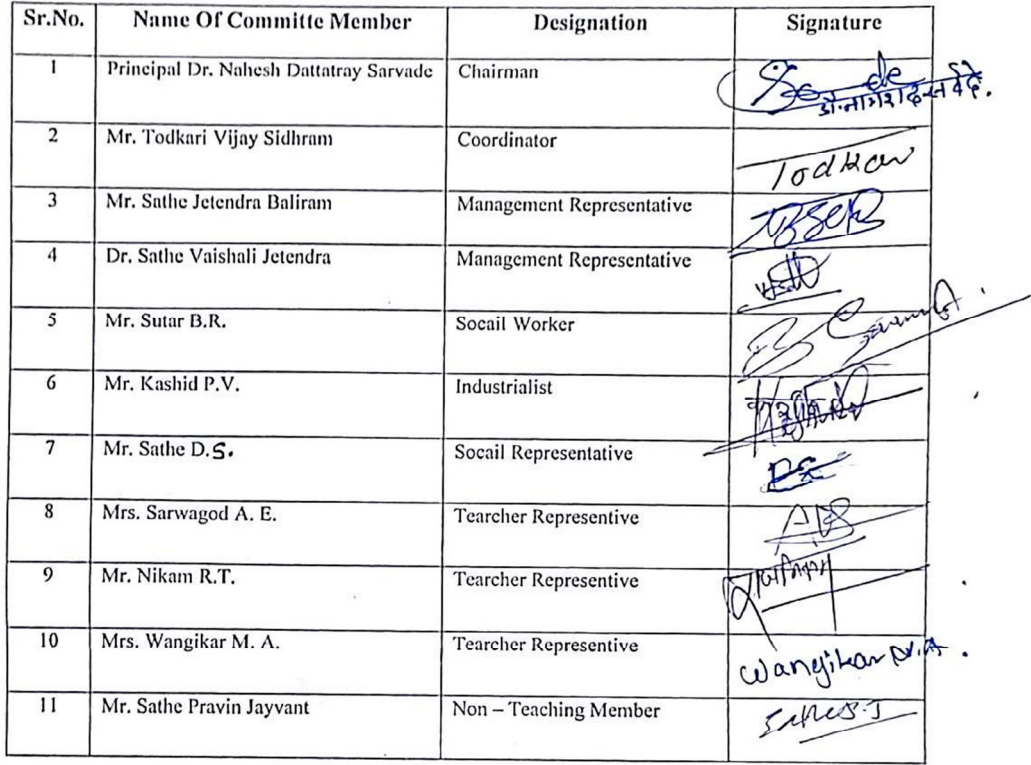 Sr.No. Name Of Committe Member Designation Signature
1 Principal Dr. Nahesh Dattatray Sarvade Chairman
2 Mr. Todkari Vijay Sidhram Coordinator
3 Mr. Sathe Jetendra Baliram Management Representative
4 Dr. Sathe Vaishali Jetendra Management Representative
5 Mr. Sutar B.R. Socail Worker
6 Mr. Kashid P.V. Industrialist
7 Mr. Sathe D.S. Socail Representative
8 Mrs. Sarwagod A. E. Tearcher Representive
9 Mr. Nikam R.T. Tearcher Representive
10 Mrs. Wangikar M. A. Tearcher Representive Wangikar M.A.
11 Mr. Sathe Pravin Jayvant Non – Teaching Member